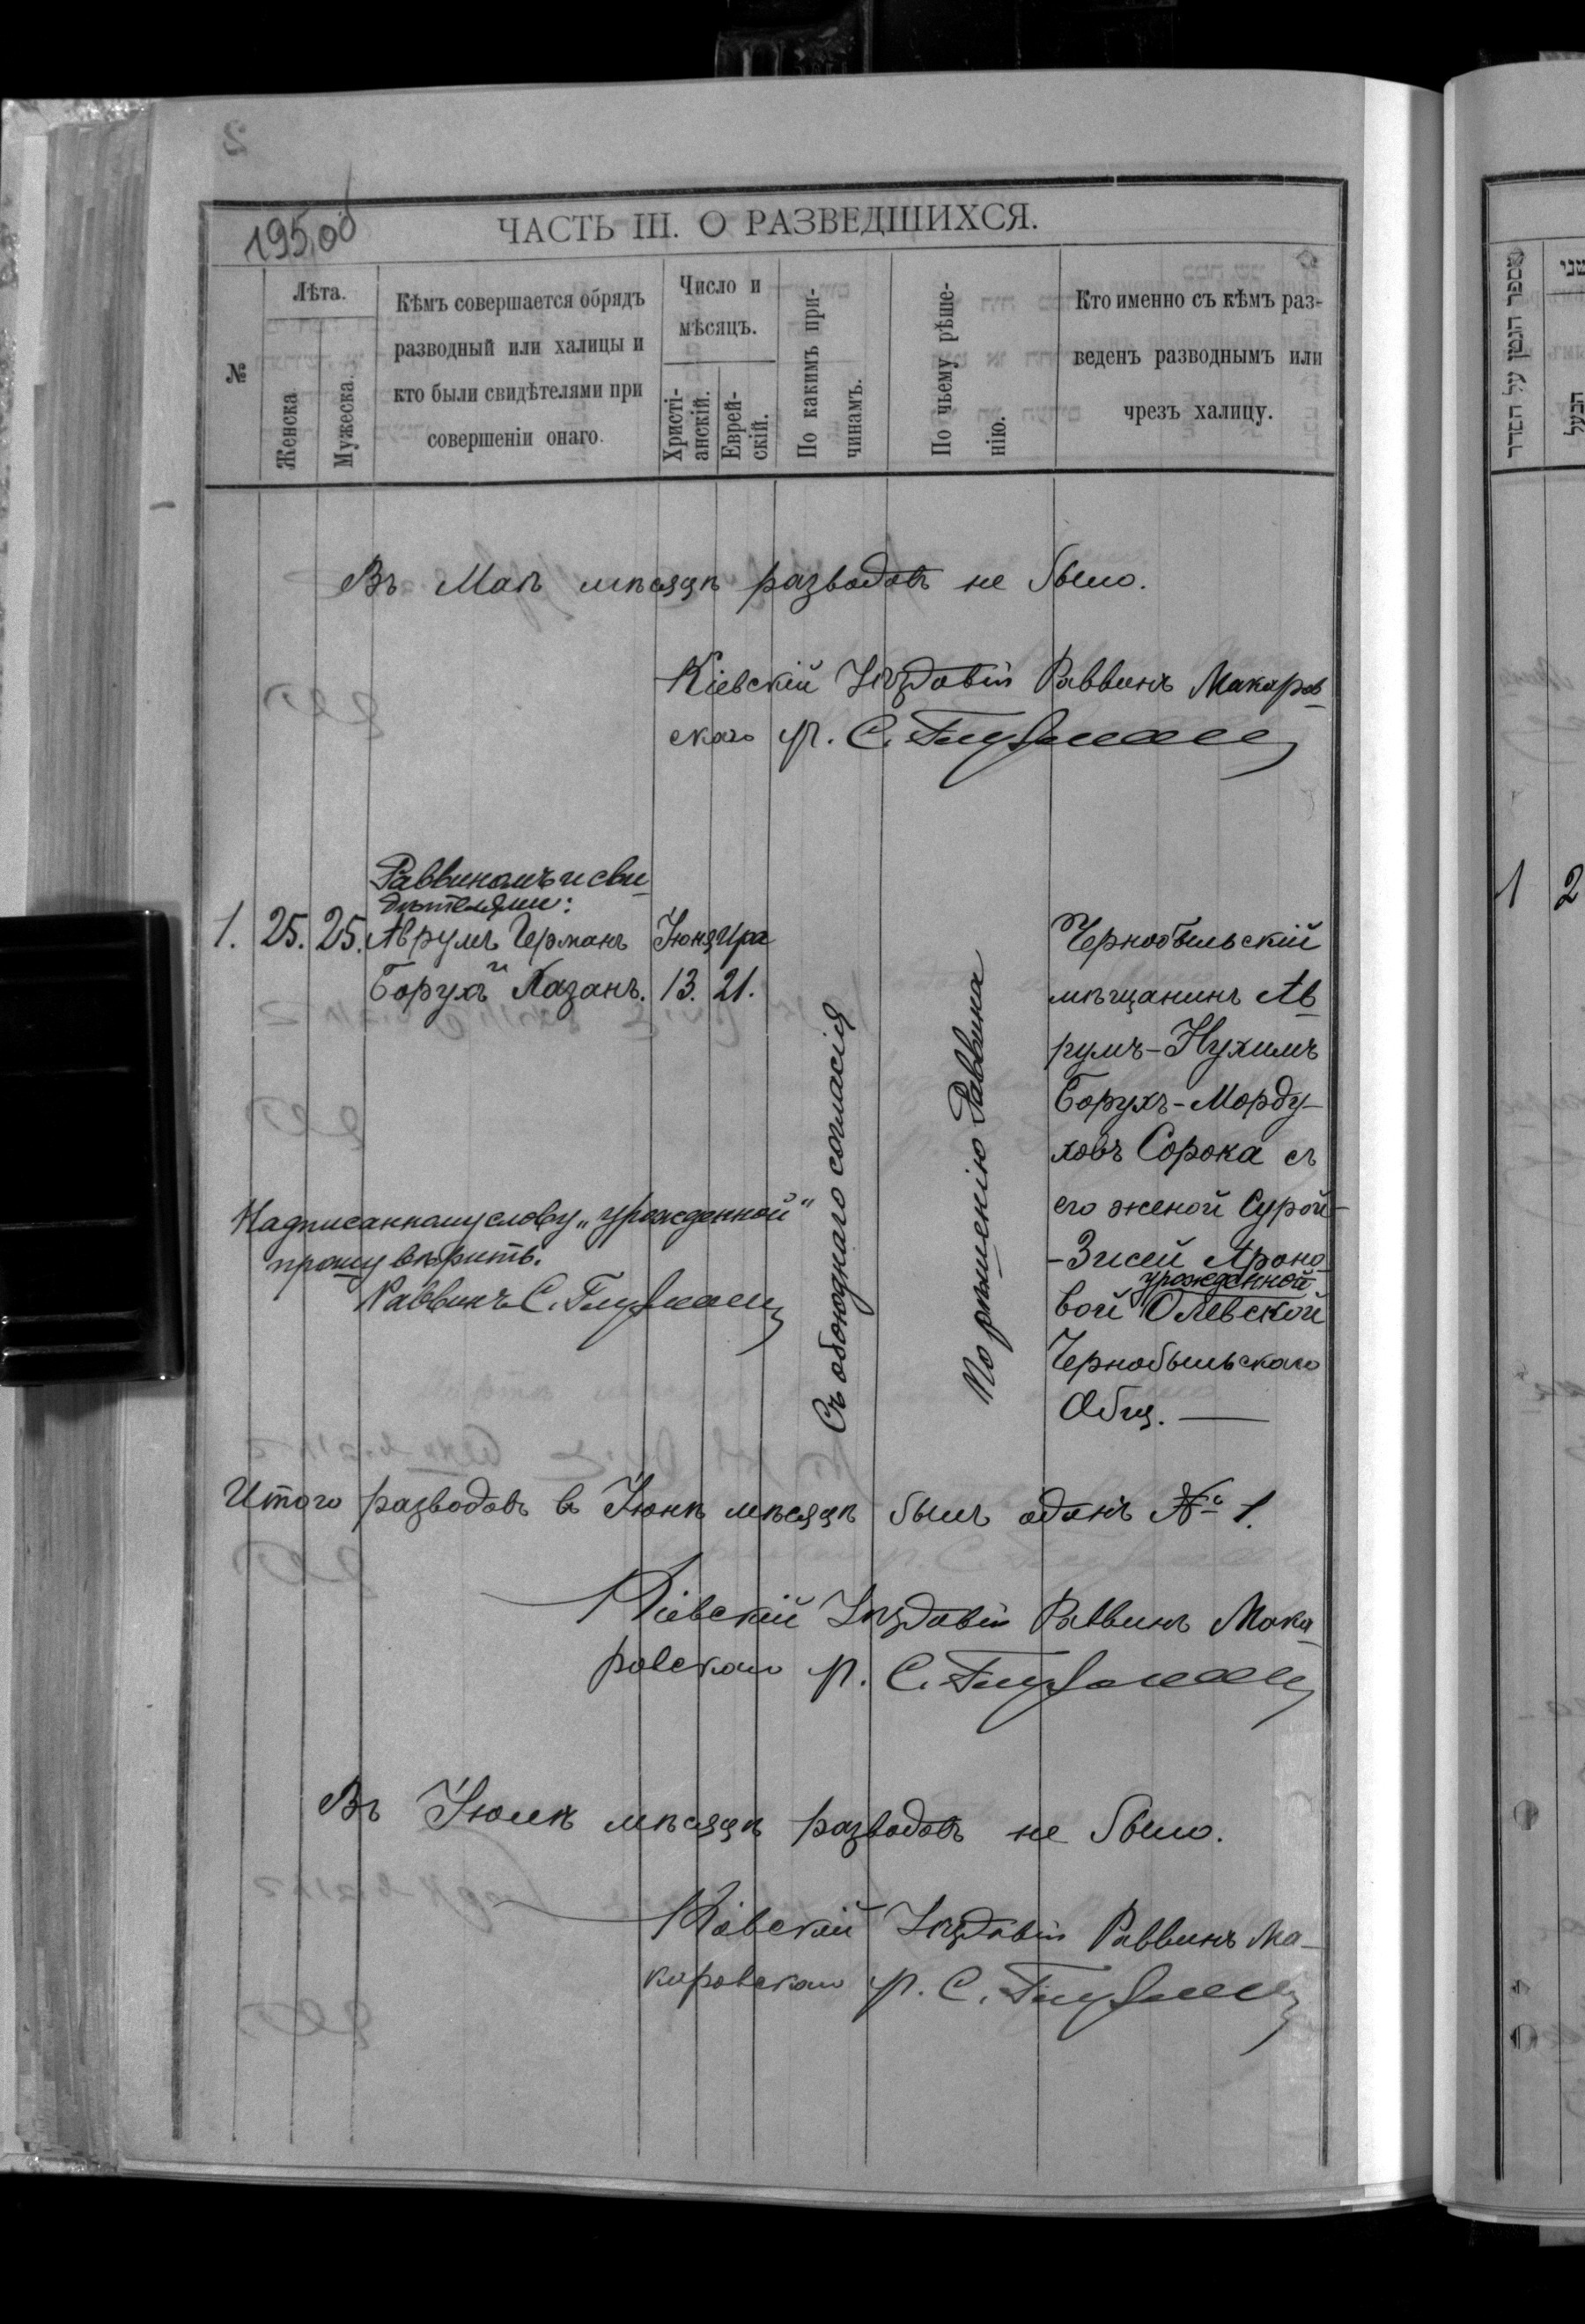 195об
ЧАСТЬ III. О РАЗВЕДШИХСЯ.
№
Лѣта.
Женска
Мужеска.
Кѣмъ совершается обрядъ
разводный или халицы и
кто были свидѣтелями при
совершеніи онаго.
Число и
мѣсяцъ.
Христі-
анскій.
Еврей-
скій.
По какимъ при-
чинамъ.
По чьему рѣше-
нію.
Кто именно съ кѣмъ раз-
веденъ разводнымъ или
чрезъ халицу.
Въ Маѣ мѣсяцѣ разводовъ не было.
Кіевскій Уѣздовый Раввинъ Макаров
скаго р.
Раввиномъ и сви
дѣтелями:
1. 25. 25. Аврумъ Германъ Іюня Ира
и
Борухъ Казанъ. 13. 21.
Съ обоюднаго согласія
По рѣшенію Раввина
Чернобыльскій
мѣщанинъ Ав
румъ-Нухимъ
Борухъ-Морду-
ховъ Сорока съ
его женой Сурой-
-Зисей Ароно
урожденной
вой Олевской
Чернобыльскаго
Общ.
Надписанному слову „урожденной“
прошу вѣрить.
Раввинъ С.
Итого разводовъ в Іюнѣ мѣсяцѣ былъ одинъ № 1.
Кіевскій Уѣздовый Раввинъ Мака
ровскаго р. С.
Въ Іюлѣ мѣсяцѣ разводовъ не было.
Кіевскій Уѣздовый Раввинъ Ма-
каровскаго р. С.
מספר הגטין על הסדר
שני
הבעל
1 2